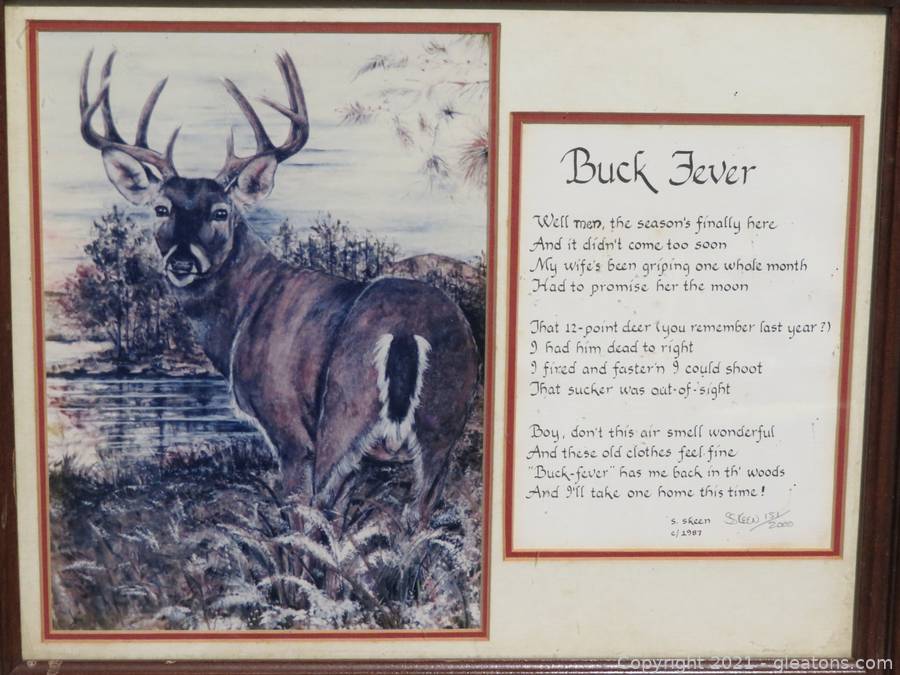 Buck Fever
Well men, the season's finally here
And it didn't come too soon
My wife's been griping one whole month
Had to promise her the moon
That 12-point deer (you remember last year?)
I had him dead to right
I fired and faster'n I could shoot
That sucker was out-of-sight
Boy, don't this air smell wonderful
And these old clothes feel fine
"Buck-fever" has me back in th' woods
And I'll take one home this time!
s. skeen SSKEEN 151/2000
c/1987
Copyright 2021 - gleatons.com